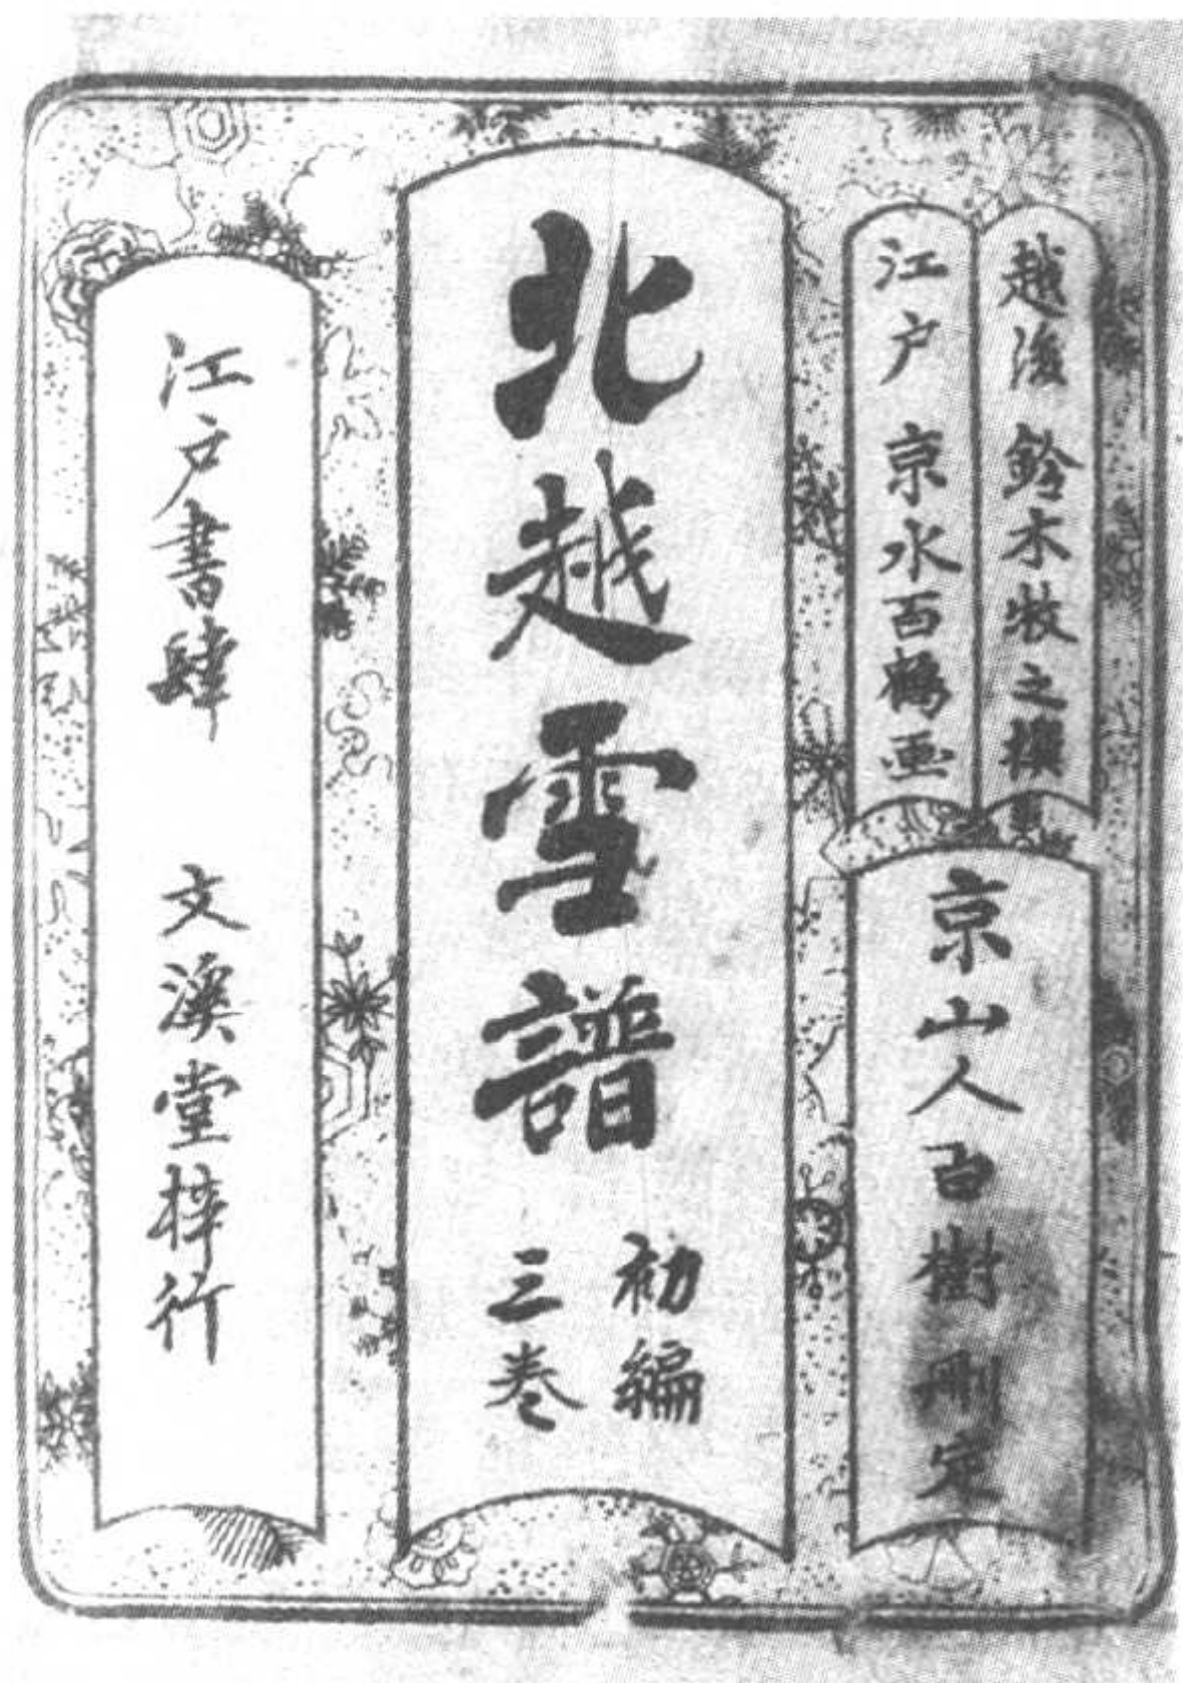 越後 鈴木牧之撰
江戸 京水百鶴画
京山人百樹刪定
北越雪譜
初編
三巻
江戸書肆 文溪堂梓行